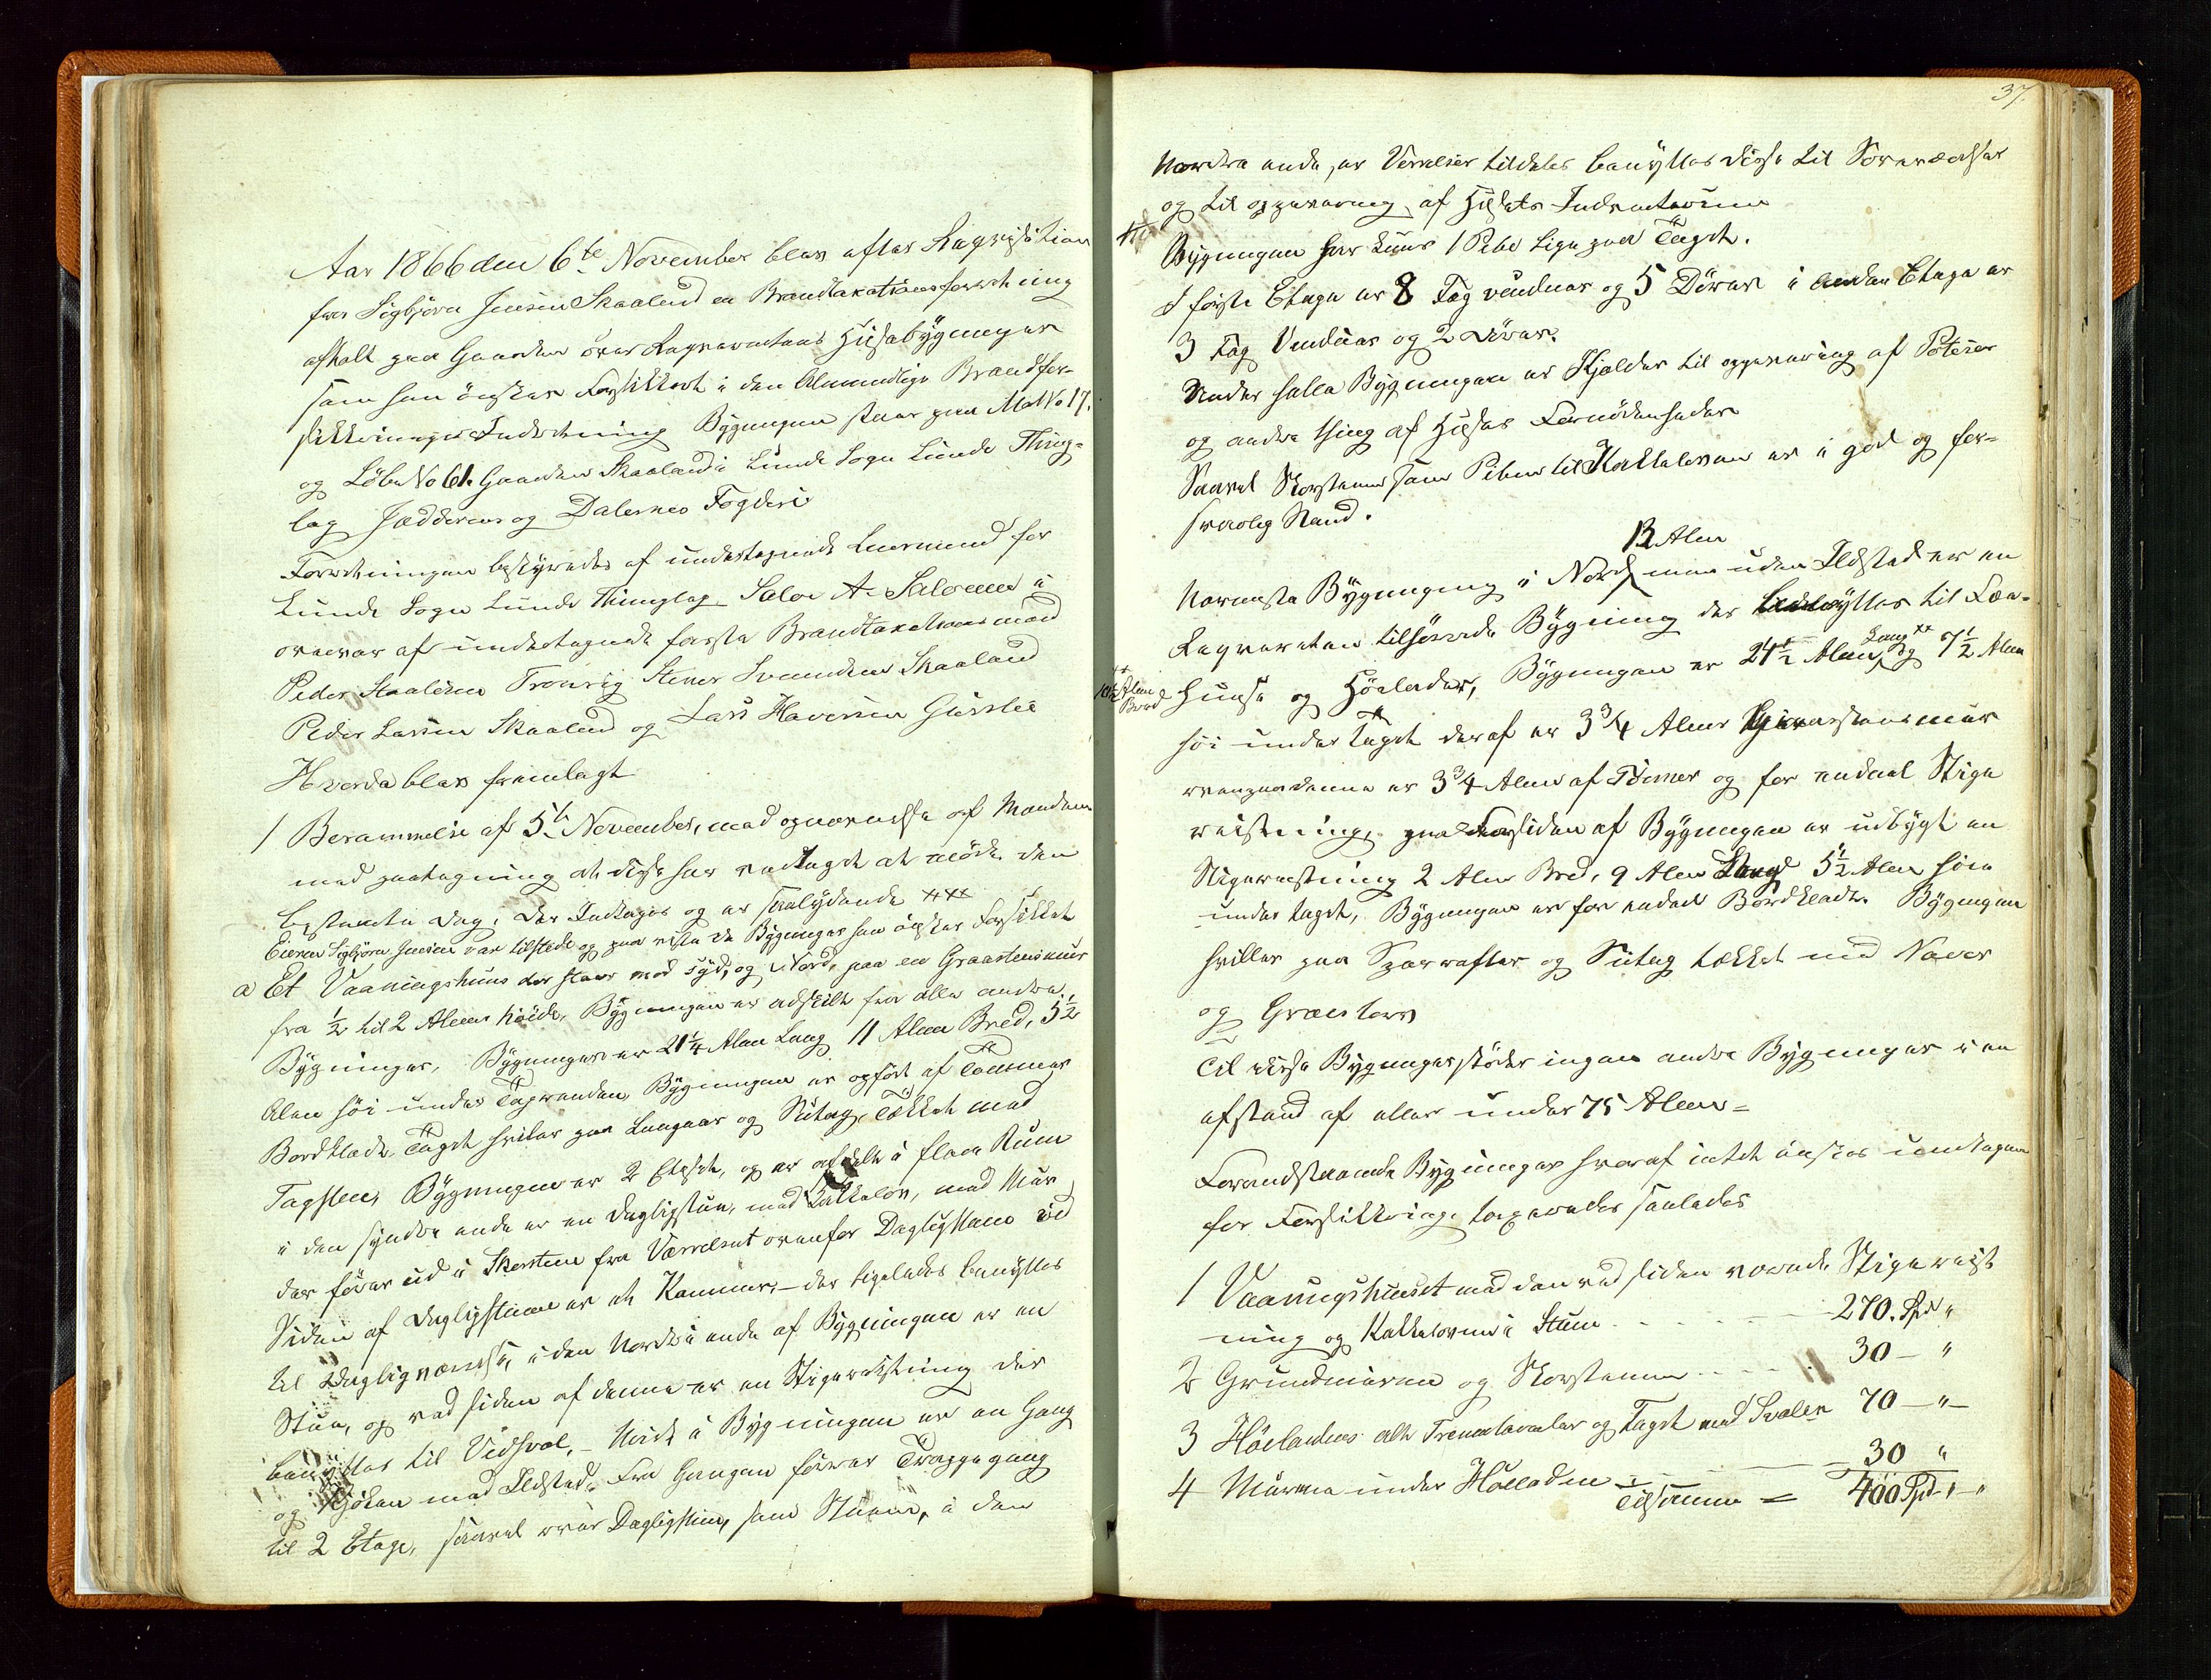 Aar 1866 den 6te November blev efter Reqvisition
fra Sigbjørn Jensen Skaaland en Brandtaxationsforretning
afholdt paa Gaarden over Reqvirentens Huusebygninger
som han ønsker Forsikkret i den Almindelige Brandfor-
sikkringsindretning Bygningen staar paa Mat No 17.
og Løbe No 61. Gaarden Skaaland i Lunde Sogn Lunde Thing-
lag Jædderens og Dalernes Fogderi
Forretningen bestyredes af undertegnede Lensmand for
Lunde Sogn Lunde Thinglag Salve A. Salvesen i
overvær af undertegnede faste Brandtaxationsmænd
Peder Staalesen Tronvig Steener Svendsen Skaaland
Peder Larsen Skaaland og Lars Haversen
Hvorda blev fremlagt
1 Berammelse af 5te November, med opnævnelse af Mændene
med paategning at disse har vedtaget at møde den
bestemte Dag, der Indtages og er saalydende ***
Eieren Sigbjørn Jensen var tilstede og paa viste de Bygninger han ønsker Forsikkret
a Et Vaaningshuus der staar mod Syd, og Nord, paa en Graasteensmuur
fra ½ til 2 Alens høide, Bygningen er adskilt fra alle andre
Bygninger, Bygningen er 21¼ Alen Lang 11 Alen Bred, 5½
Alen høi under Tagranden, Bygningen er opført af Tømmer
Bordklædt, Taget hviler paa Langaas og Sutag, Tækket med
Tagsteen, Bygningen er 2 Etages, og er afdelt i flere Rum
i den syndre ende er en Dagligstue, med Kakkelov, med Muur
der fører ud i Skorsteen fra Værelset ovenfor Dagligstuen ved
Siden af Dagligstuen er et Kammer, – der ligeledes benyttes
til Dagligværelse, i den Nordre ende af Bygningen er en
Stue, og ved siden af denne er en Stigereisning der
benyttes til Vedsval, – Midt i Bygningen er en Gang
og Kjøken med Ildsted. Fra Gangen fører Trappegang
til 2 Etage, saavel over Dagligstuen, som Stuen, i den
37.
Nordre ende, er Værelser tildeles benyttes disse til Soveværelser
og til opbevaring af Husets Indventarium
Bygningen har kuns 1 Pibe lige paa Taget.
I første Etage er 8 Fag vinduer og 5 Dører i anden Etage er
3 Fag Vinduer og 2 Dører.
Under hele Bygningen er Kjelder til opbevaring af Poteter
og andre thing af Husets Fornødenheder
Saavel Skorsteen som Piben til Kakkelovnen er i god og for-
svarlig Stand.
12 Alen
Nærmeste Bygning i Nord men uden Ildsted er en
Reqvirenten tilhørende Bygning der benyttes til Fæe-
huuse og Høelader, Bygningen er 24½ Alen Lang ** og 7½ Alen
** 10½ Alen Bred
høi under Taget deraf er 3¾ Alen Graasteensmuur
ovenpaa denne er 3¾ Alen af Tømmer og for endeel Stige
reisning, paa Forsiden af Bygningen er udbygt en
Stigereisning 2 Alen Bred, 9 Alen Lang 5½ Alen høi
under taget, Bygningen er for endeel Bordklædt. Bygningen
hviller paa Sparrafter og Sutag tækket med Næver
og Græstørv
Til disse Bygninger støder ingen andre Bygninger i en
afstand af eller under 75 Alen –
Forandstaaende Bygninger hvoraf intet ønskes undtagen
for Forsikkring, taxeredes saaledes
1 Vaaningshuuset med den ved siden værende Stigereis
ning og Kakkelovne i Stuen . . . . . 270. Spd "
2 Grundmuren og Skorsteenen . . . . 30 – "
3 Høeladens alle Træmaterialer og Taget med Svalen 70 – " –
4 Murene under Høeladen – – – 30 "
Tilsammen = 400 Spd – " – "